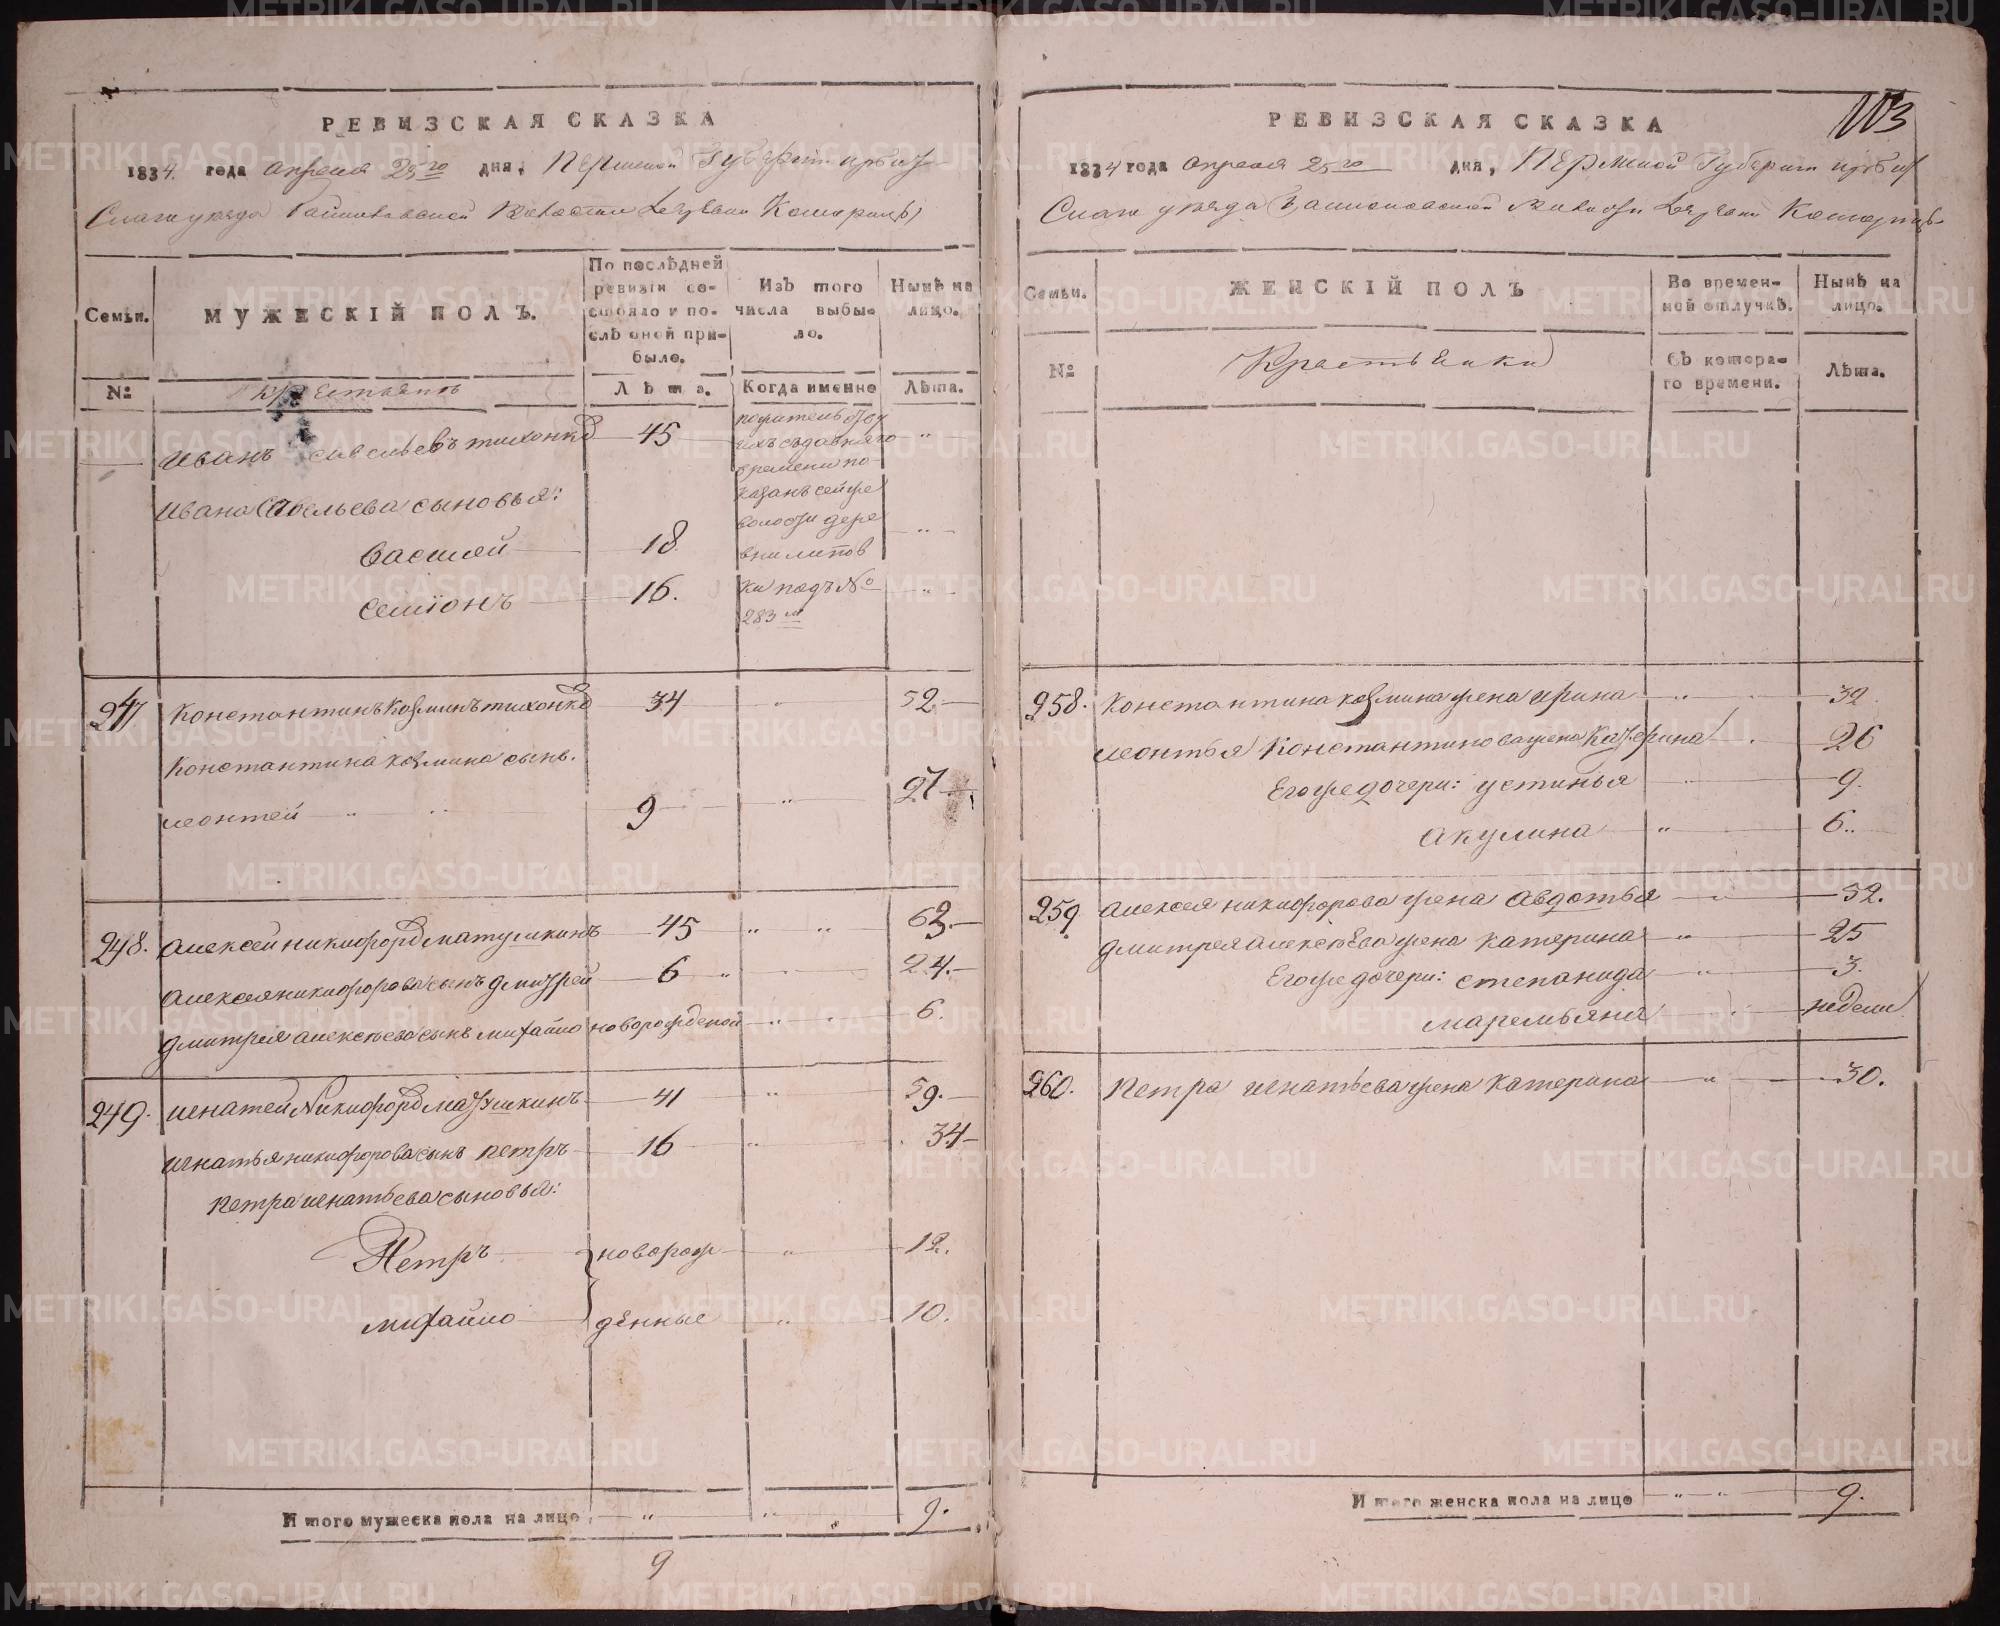 РЕВИЗСКАЯ СКАЗКА
1834. года апреля 25го дня, Пермской Губернии
волости деревни
Семьи.
МУЖЕСКІЙ ПОЛЪ.
По послѣдней ревизіи состояло и послѣ оной прибыло.
Изъ того числа выбыло.
Нынѣ на лицо.
№
Лѣта.
Когда именно
Лѣта.
Иванъ савельевъ тихоно 45
Ивана Савельева сыновья:
василей 18
семіонъ 16.
времени по
казанъ сей же
волости дере
вни липов
ки подъ №
283м
247 Константинъ Козминъ тихоно 34 „ 52
Константина козмина сынъ.
леонтей 9 „ 27
248. алексей никифоро матушкинъ 45 „ „ 63.
алексея никифорова сынъ дмитрей 6 „ 24.
дмитрея алексѣева сынъ михайло новорожденой „ 6.
249. игнатей Никифоро матушкинъ 41 „ 59.
игнатья никифорова сынъ петръ 16 „ 34
петра игнатьева сыновья:
Петръ новорож „ 12.
михайло денные „ 10.
Итого мужеска пола на лицо „ „ 9.
9
103
РЕВИЗСКАЯ СКАЗКА
1834 года апреля 25го дня, Пермской Губернии
уезда волости деревни
Семьи.
ЖЕНСКІЙ ПОЛЪ
Во временной отлучкѣ.
Нынѣ на лицо.
№
Крестьянки
Съ котораго времени.
Лѣта.
258. Константина козмина жена ирина „ 32.
леонтья Константинова жена катерина 26
Его же дочери: устинья „ 9.
акулина „ 6.
259 алексея никифорова жена авдотья „ 52.
дмитрея алексѣева жена катерина „ 25
Его же дочери: степанида „ 3.
маремьяна недели
260. петра игнатьева жена катерина „ 30.
Итого женска пола на лицо „ „ 9.
METRIKI.GASO-URAL.RU